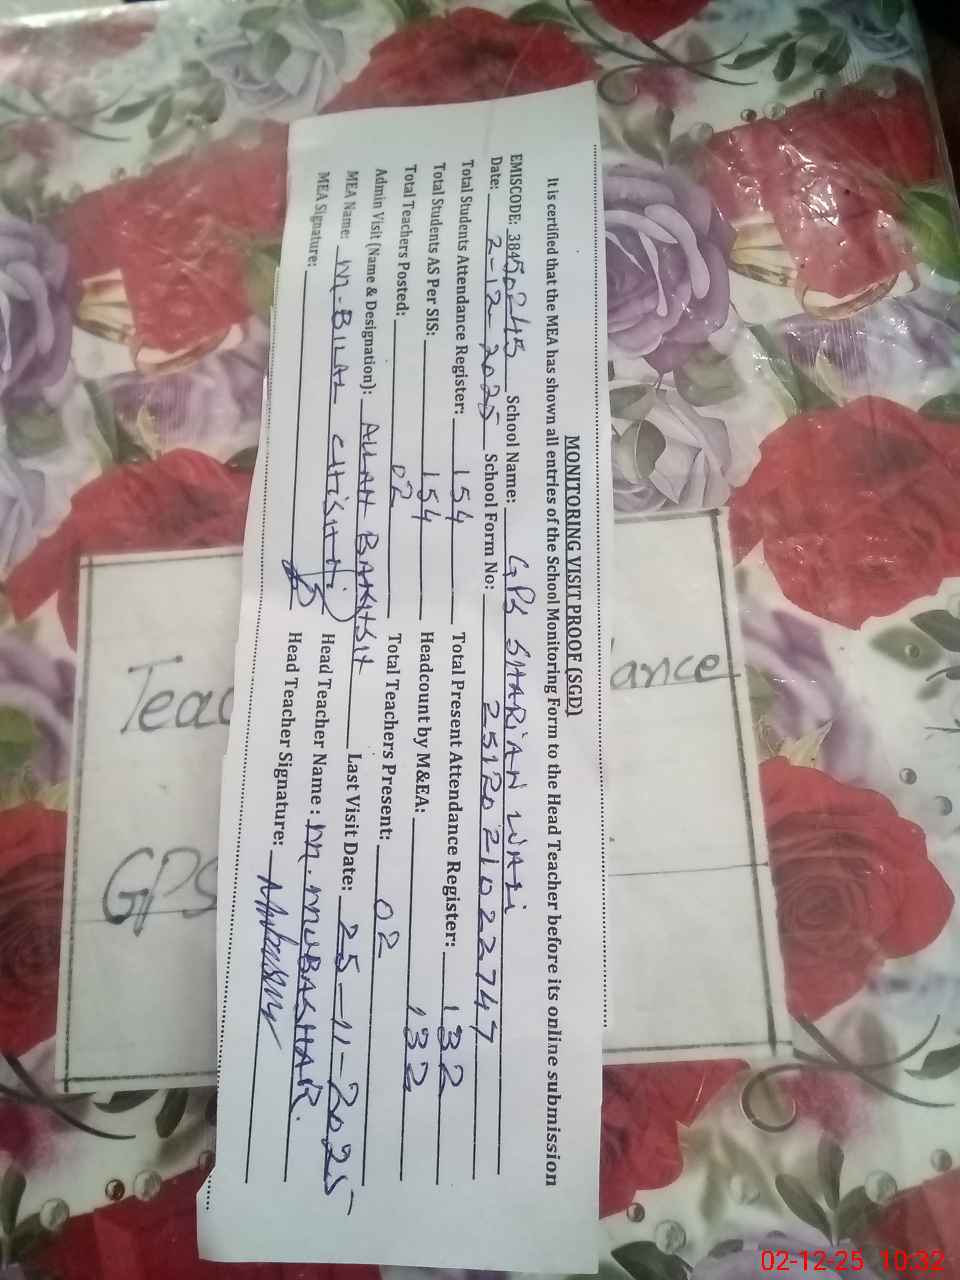 MONITORING VISIT PROOF (SGD)
It is certified that the MEA has shown all entries of the School Monitoring Form to the Head Teacher before its online submission
EMISCODE: 38450245 School Name: GPS SHARiAN WALi
Date: 2-12-2025 School Form No: 25120210 22747
Total Students Attendance Register: 154 Total Present Attendance Register: 132
Total Students AS Per SIS: 154 Headcount by M&EA: 132
Total Teachers Posted: 02 Total Teachers Present: 02
Admin Visit (Name & Designation): ALLAH BAKHSH Last Visit Date: 25-11-2025
MEA Name: M. BILAL CHiSHTi Head Teacher Name : M. MUBASHAR.
MEA Signature: Head Teacher Signature:
Teac ance
GPS
02-12-25 10:32